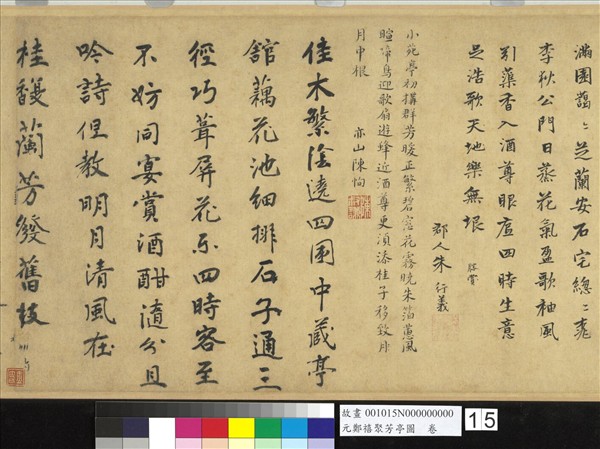 滿園藹藹芝蘭安石宅總總花
李狄公門日蒸花氣盈歌袖風
引藥香入酒尊眼底四時生意
足浩歌天地樂無垠
郡人朱行義
小苑亭初搆群芳暖正繁碧窗花霧曉朱箔蕙風
暄啼鳥迎歌扇遊蜂近酒尊更須添桂子移致月
月中根
亦山陳恂
佳木繁陰遶四圍中藏亭
館藕花池細排石子通三
徑巧葺屏花示四時客至
不妨同宴賞酒酣隨分且
吟詩但教明月清風在
桂馥蘭芳發舊枝
故畫 001015N000000000
元鄭禧聚芳亭圖 卷
15